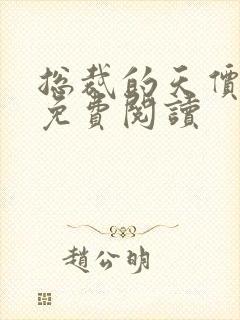 总裁的天價
免費閱讀
趙公明